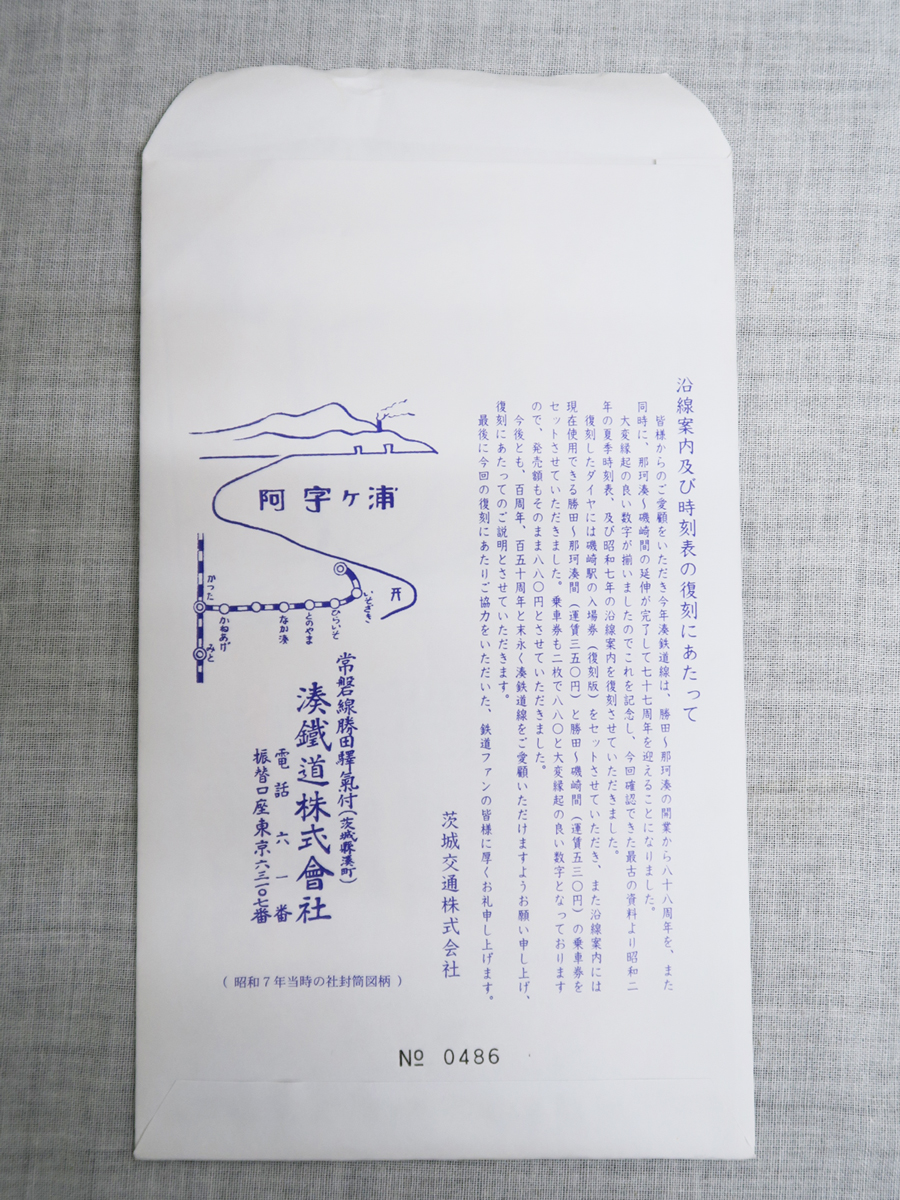 沿線案内及び時刻表の復刻にあたって
皆様からのご愛顧をいただき今年湊鉄道線は、勝田～那珂湊の開業から八十八周年を、また
同時に、那珂湊～磯崎間の延伸が完了して七十七周年を迎えることになりました。
大変縁起の良い数字が揃いましたのでこれを記念し、今回確認できた最古の資料より昭和二
年の夏季時刻表、及び昭和七年の沿線案内を復刻させていただきました。
復刻したダイヤには磯崎駅の入場券（復刻版）をセットさせていただき、また沿線案内には
現在使用できる勝田～那珂湊間（運賃三五〇円）と勝田～磯崎間（運賃五三〇円）の乗車券を
セットさせていただきました。乗車券も二枚で八八〇と大変縁起の良い数字となっております
ので、発売額もそのまま八八〇円とさせていただきました。
今後とも、百周年、百五十周年と末永く湊鉄道線をご愛顧いただけますようお願い申し上げ、
復刻にあたってのご説明とさせていただきます。
最後に今回の復刻にあたりご協力をいただいた、鉄道ファンの皆様に厚くお礼申し上げます。
茨城交通株式会社
阿字ヶ浦
いそざき
ひらいそ
とのやま
なか湊
かねあげ
かつた
みと
常磐線勝田驛氣付（茨城縣湊町）
湊鐵道株式會社
電話六一番
振替口座東京六三一〇七番
（昭和7年当時の社封筒図柄）
№ 0486